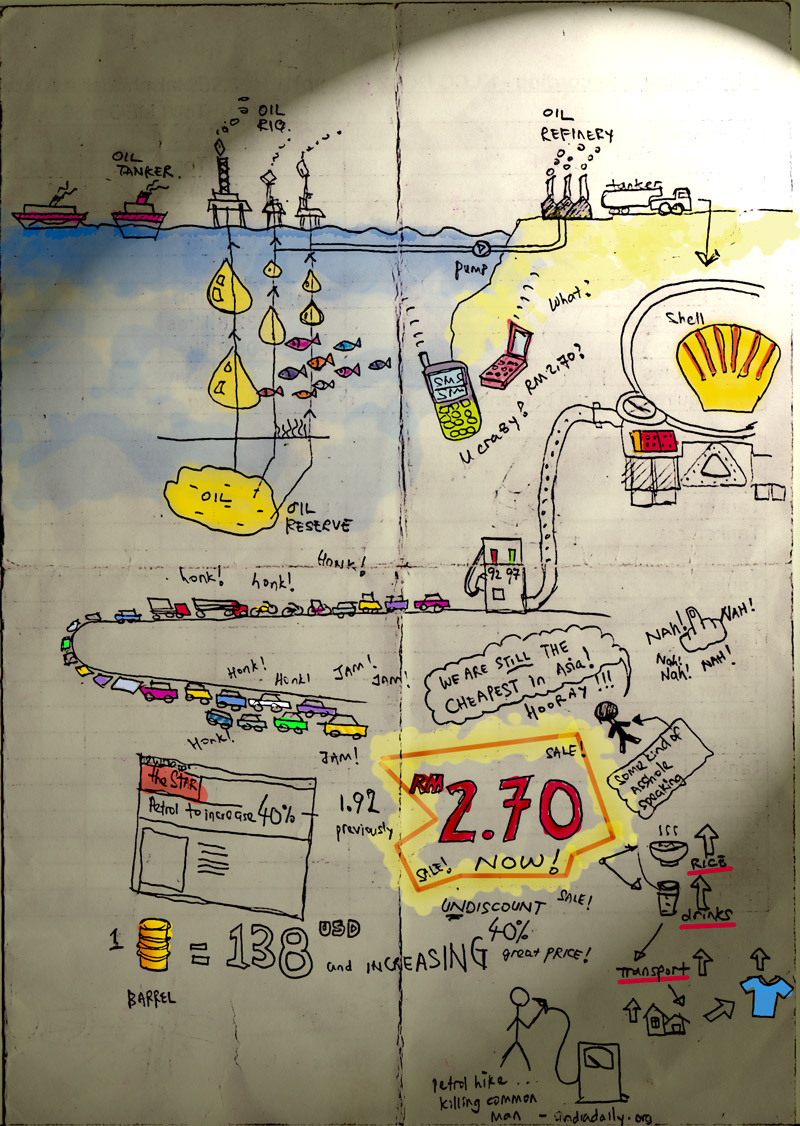 OIL
RIG
OIL
REFINERY
OIL
TANKER
tanker
pump
What?
Shell
SMS
RM 2.70?
U crazy?
OIL
OIL
RESERVE
HONK!
honk!
honk!
92 97
NAH!
NAH!
Nah!
Nah!
NAH!
WE ARE STILL THE
CHEAPEST in Asia!
HOORAY!!!
Honk!
Honk!
JAM!
JAM!
Honk!
JAM!
Some kind of
asshole
speaking
SALE!
the STAR
Petrol to increase 40%
1.92
previously
RM
2.70
SALE!
NOW!
RICE
drinks
UNDISCOUNT
SALE!
40%
great PRICE!
1
BARREL
= 138 USD
and INCREASING
transport
Petrol hike ...
killing common
man - indiadaily.org